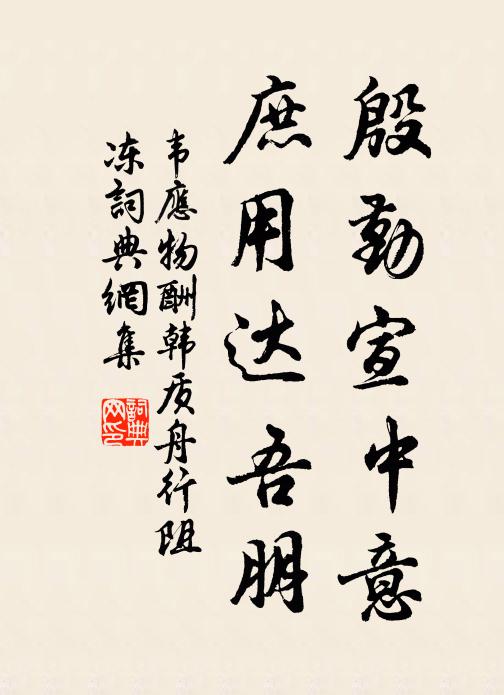 殷勤宣中意
庶用达吾朋
韦應物酬韩质舟行阻
冻詞典網集
詞典網印